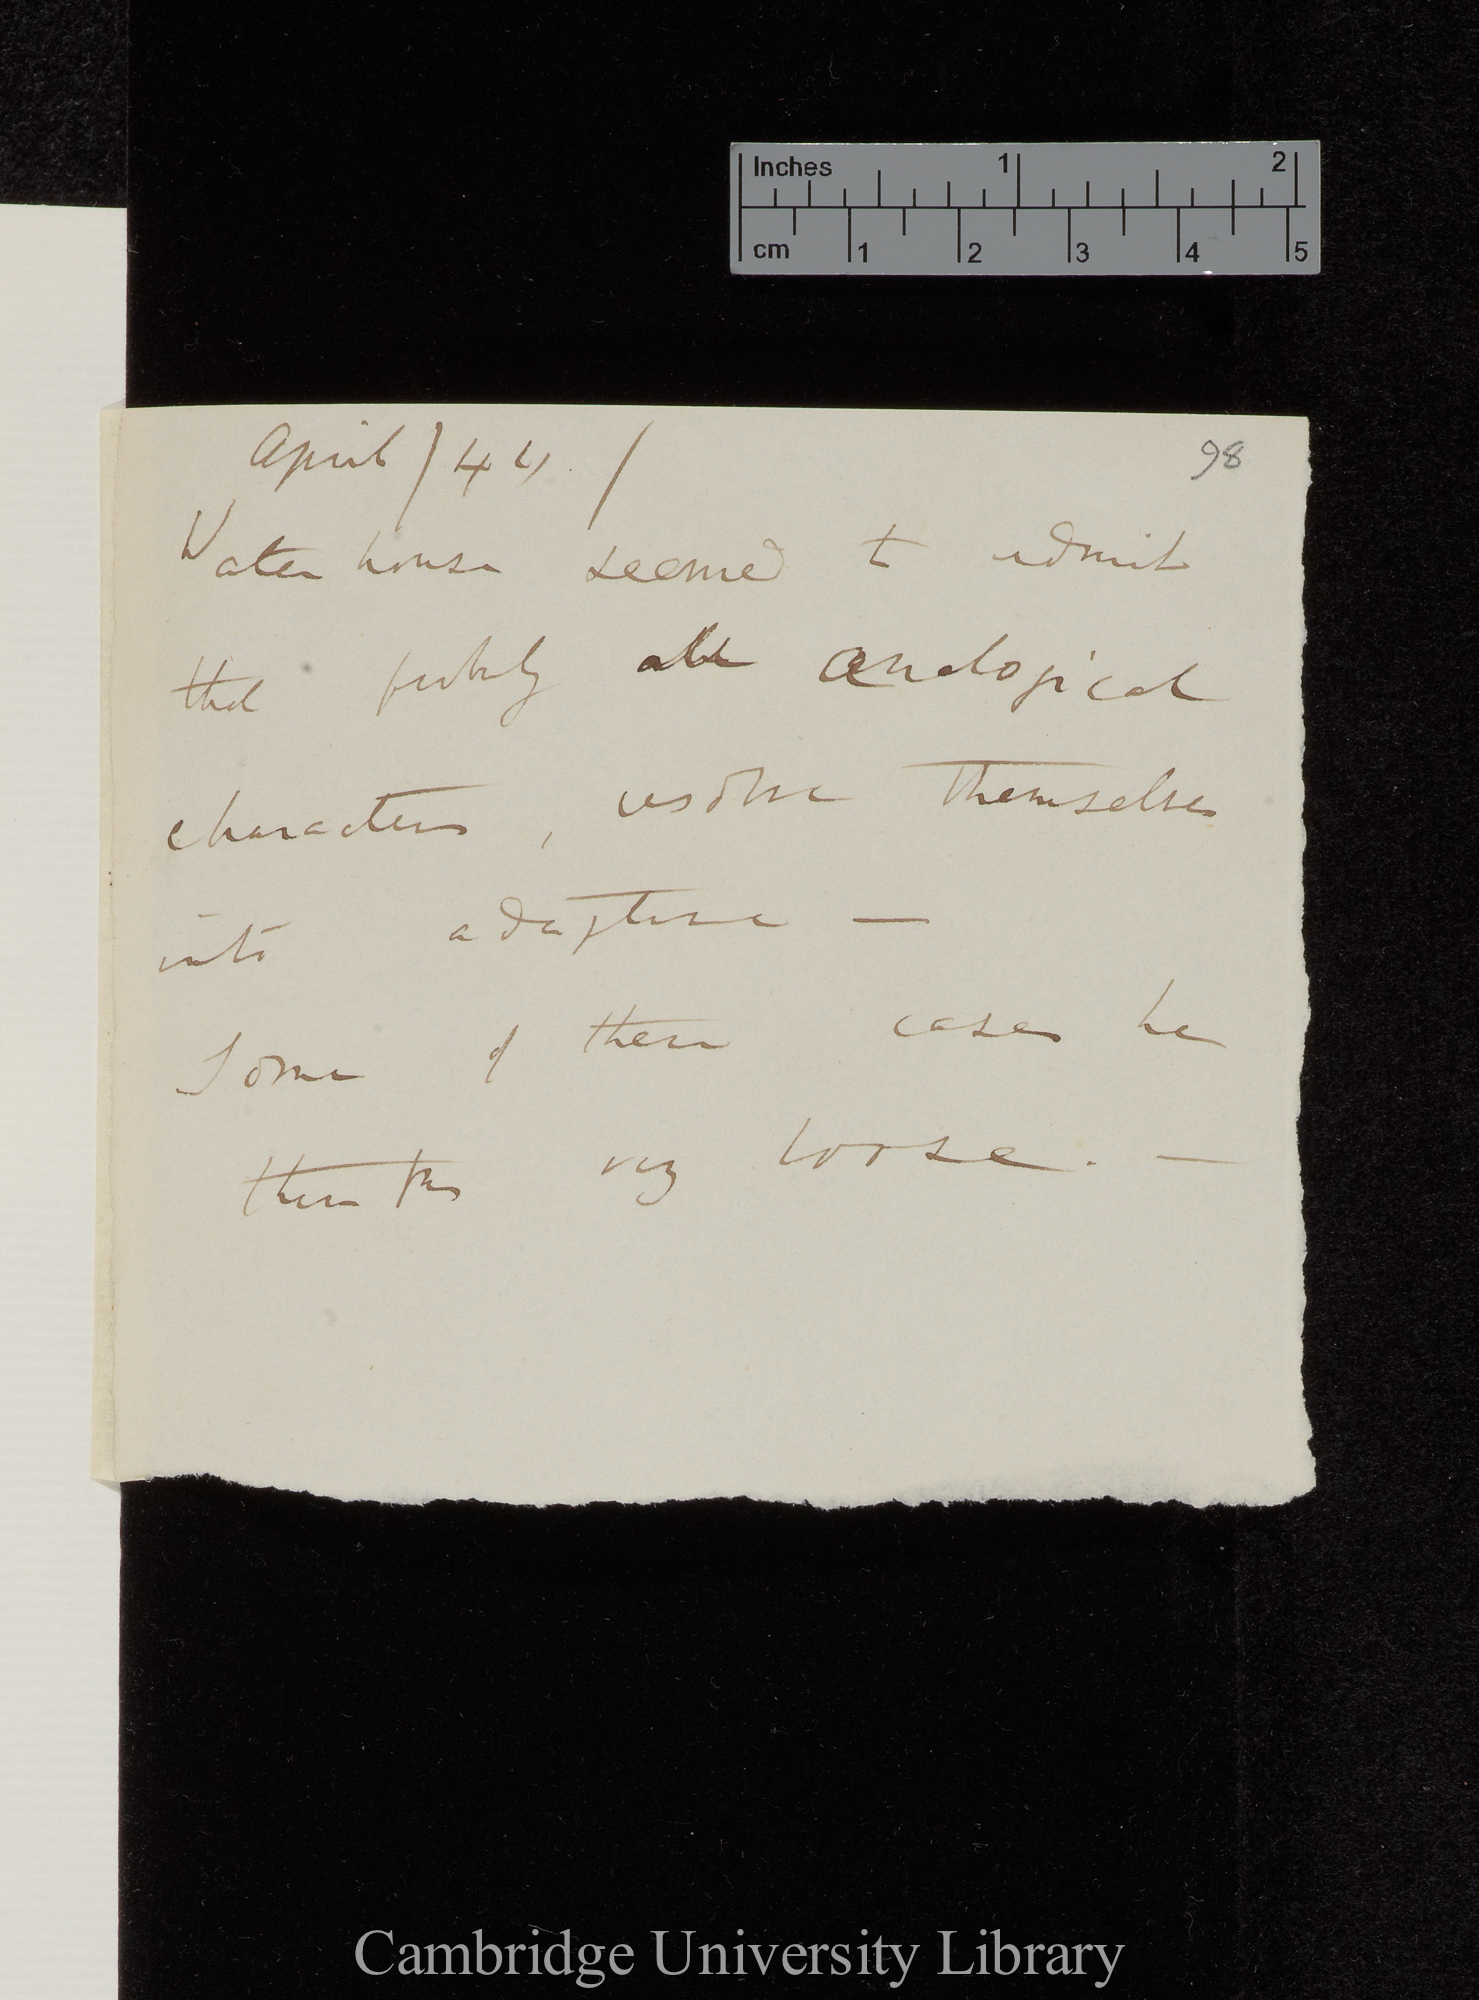 Inches 1 2
cm 1 2 3 4 5
April / 44. /
98
Waterhouse seemed to admit
that probably all analogical
characters, resolve themselves
into adaptive —
Some of these cases he
thinks very loose. —
Cambridge University Library